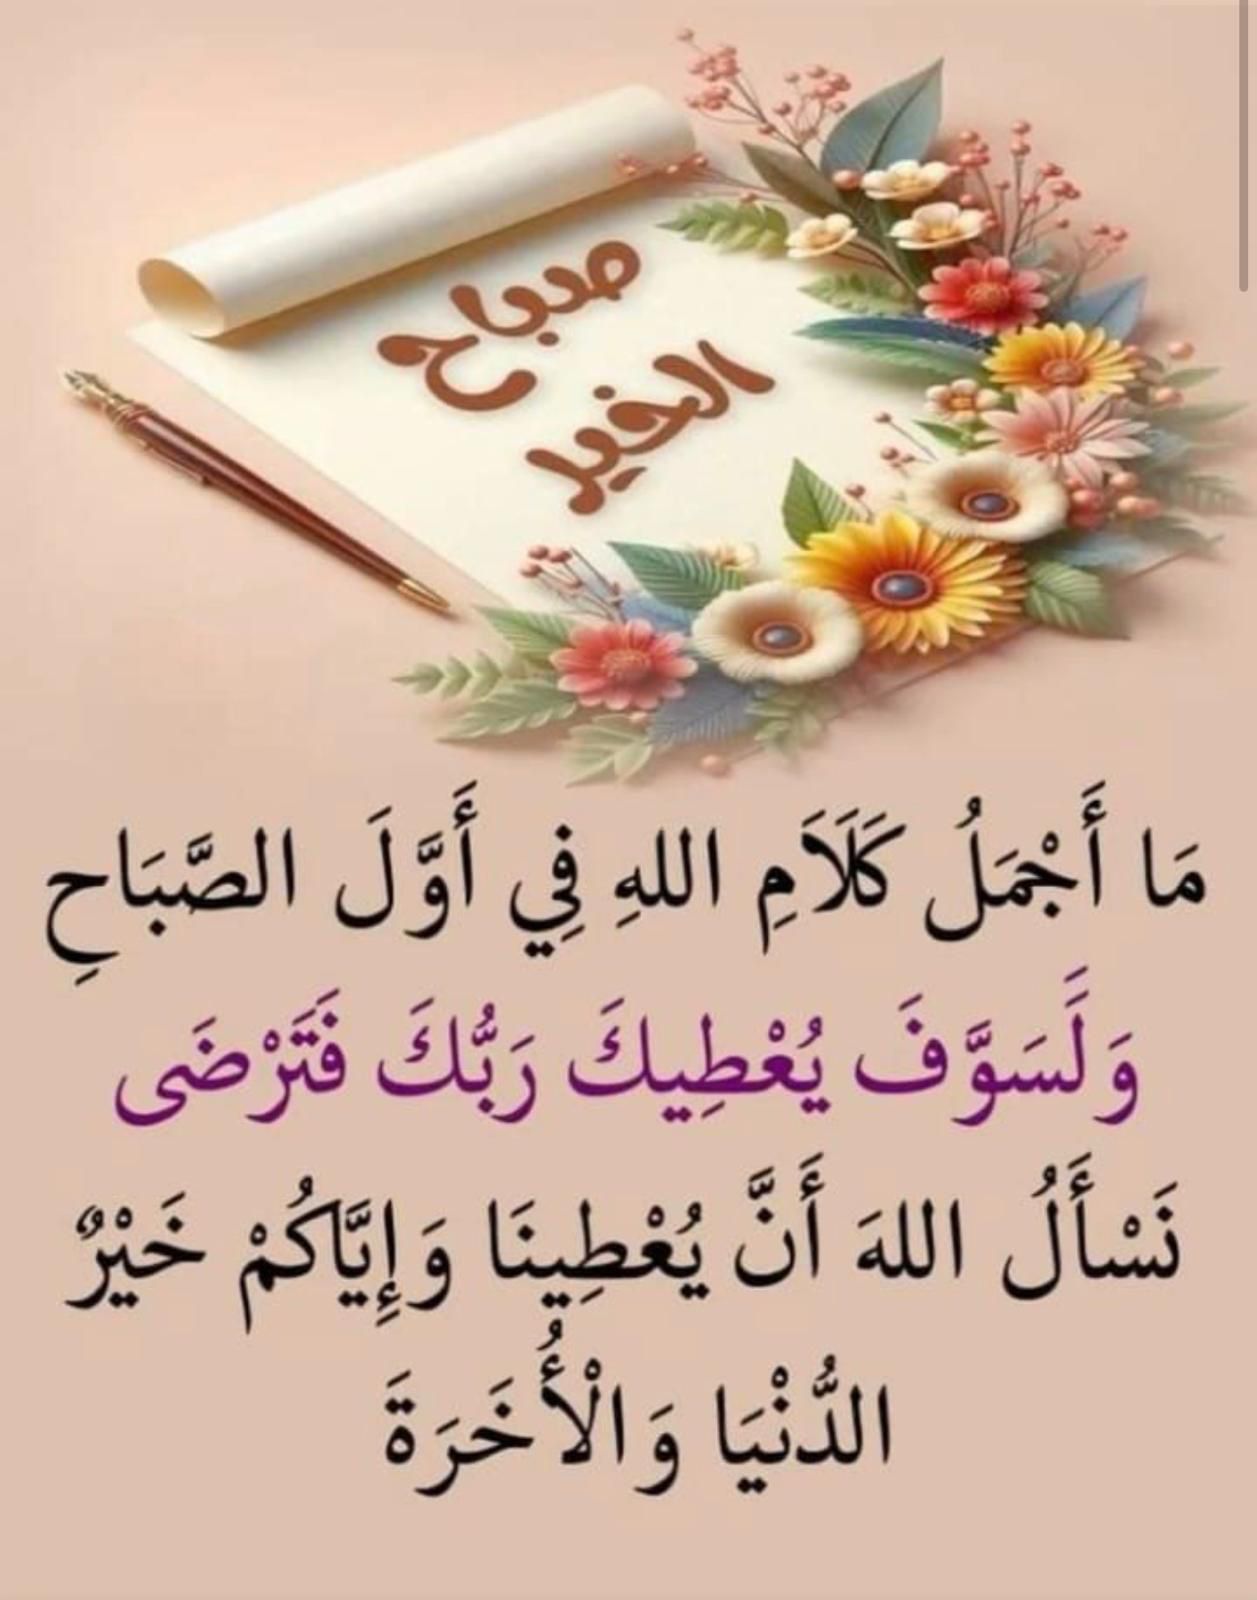 صباح
الخير
مَا أَجْمَلُ كَلَامِ اللهِ فِي أَوَّلَ الصَّبَاحِ
وَلََسَوَّفَ يُعْطِيكَ رَبُّكَ فَتَرْضَى
نَسْأَلُ اللهَ أَنَّ يُعْطِينَا وَإِيَّاكُمْ خَيْرٌ
الدُّنْيَا وَالْأُخَرَةَ